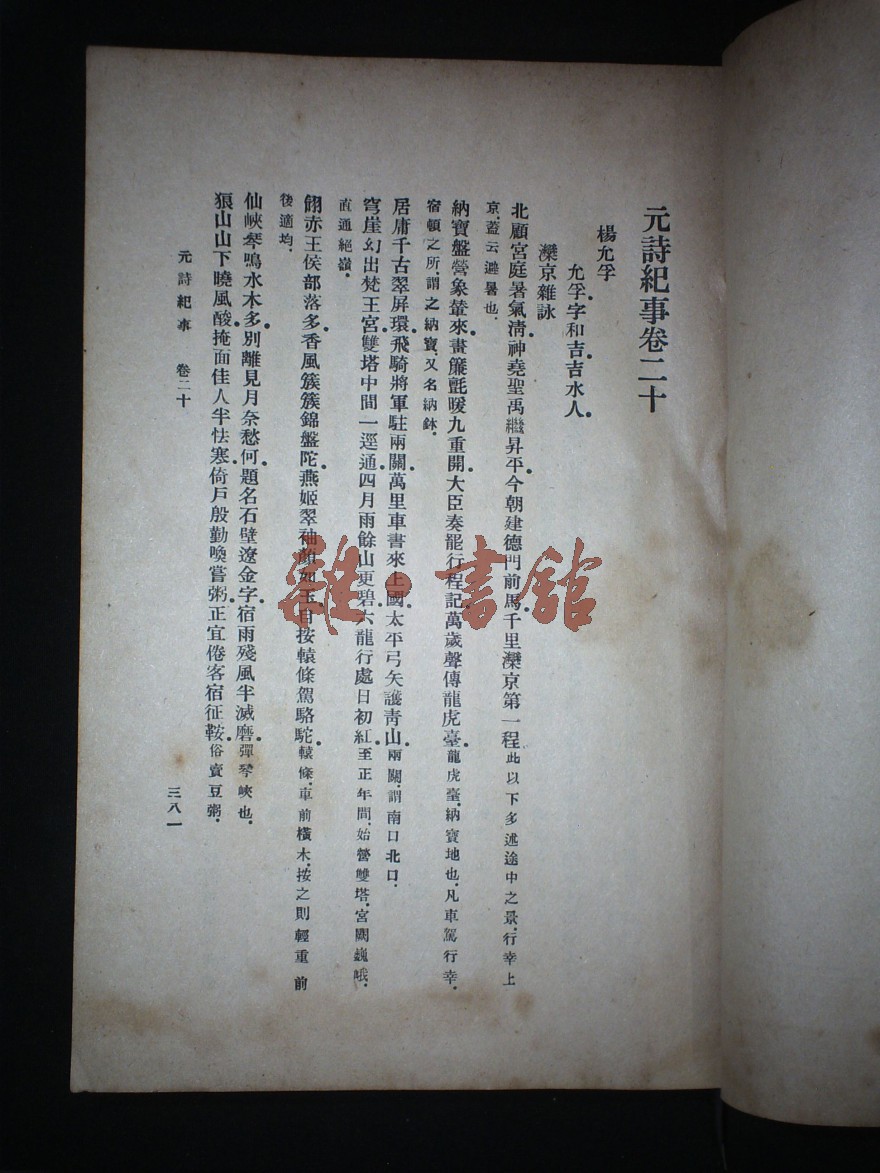 元詩紀事卷二十
楊允孚
允孚字和吉吉水人
灤京雜詠
北顧宮庭暑氣清神堯聖禹繼昇平今朝建德門前馬千里灤京第一程此以下多述途中之景行幸上
京蓋云避暑也
納寶盤營象輦來畫簾氈暖九重開大臣奏罷行程記萬歲聲傳龍虎臺龍虎臺納寶地也凡車駕行幸
宿頓之所謂之納寶又名納鉢
居庸千古翠屏環飛騎將軍駐兩關萬里車書來上國太平弓矢護青山兩關謂南口北口
穹崖幻出梵王宮雙塔中間一逕通四月雨餘山更碧六龍行處日初紅至正年間始營雙塔宮闕巍峨
直通絕嶺
翎赤王侯部落多香風簇簇錦盤陀燕姬翠袖顏如玉自按轅條駕駱駝轅條車前橫木按之則輕重前
後適均
仙峽琴鳴水木多別離見月奈愁何題名石壁遼金字宿雨殘風半滅磨彈琴峽也
狼山山下曉風酸掩面佳人半怯寒倚戶殷勤喚嘗粥正宜倦客宿征鞍俗賣豆粥
元詩紀事 卷二十 三八一
雜·書館